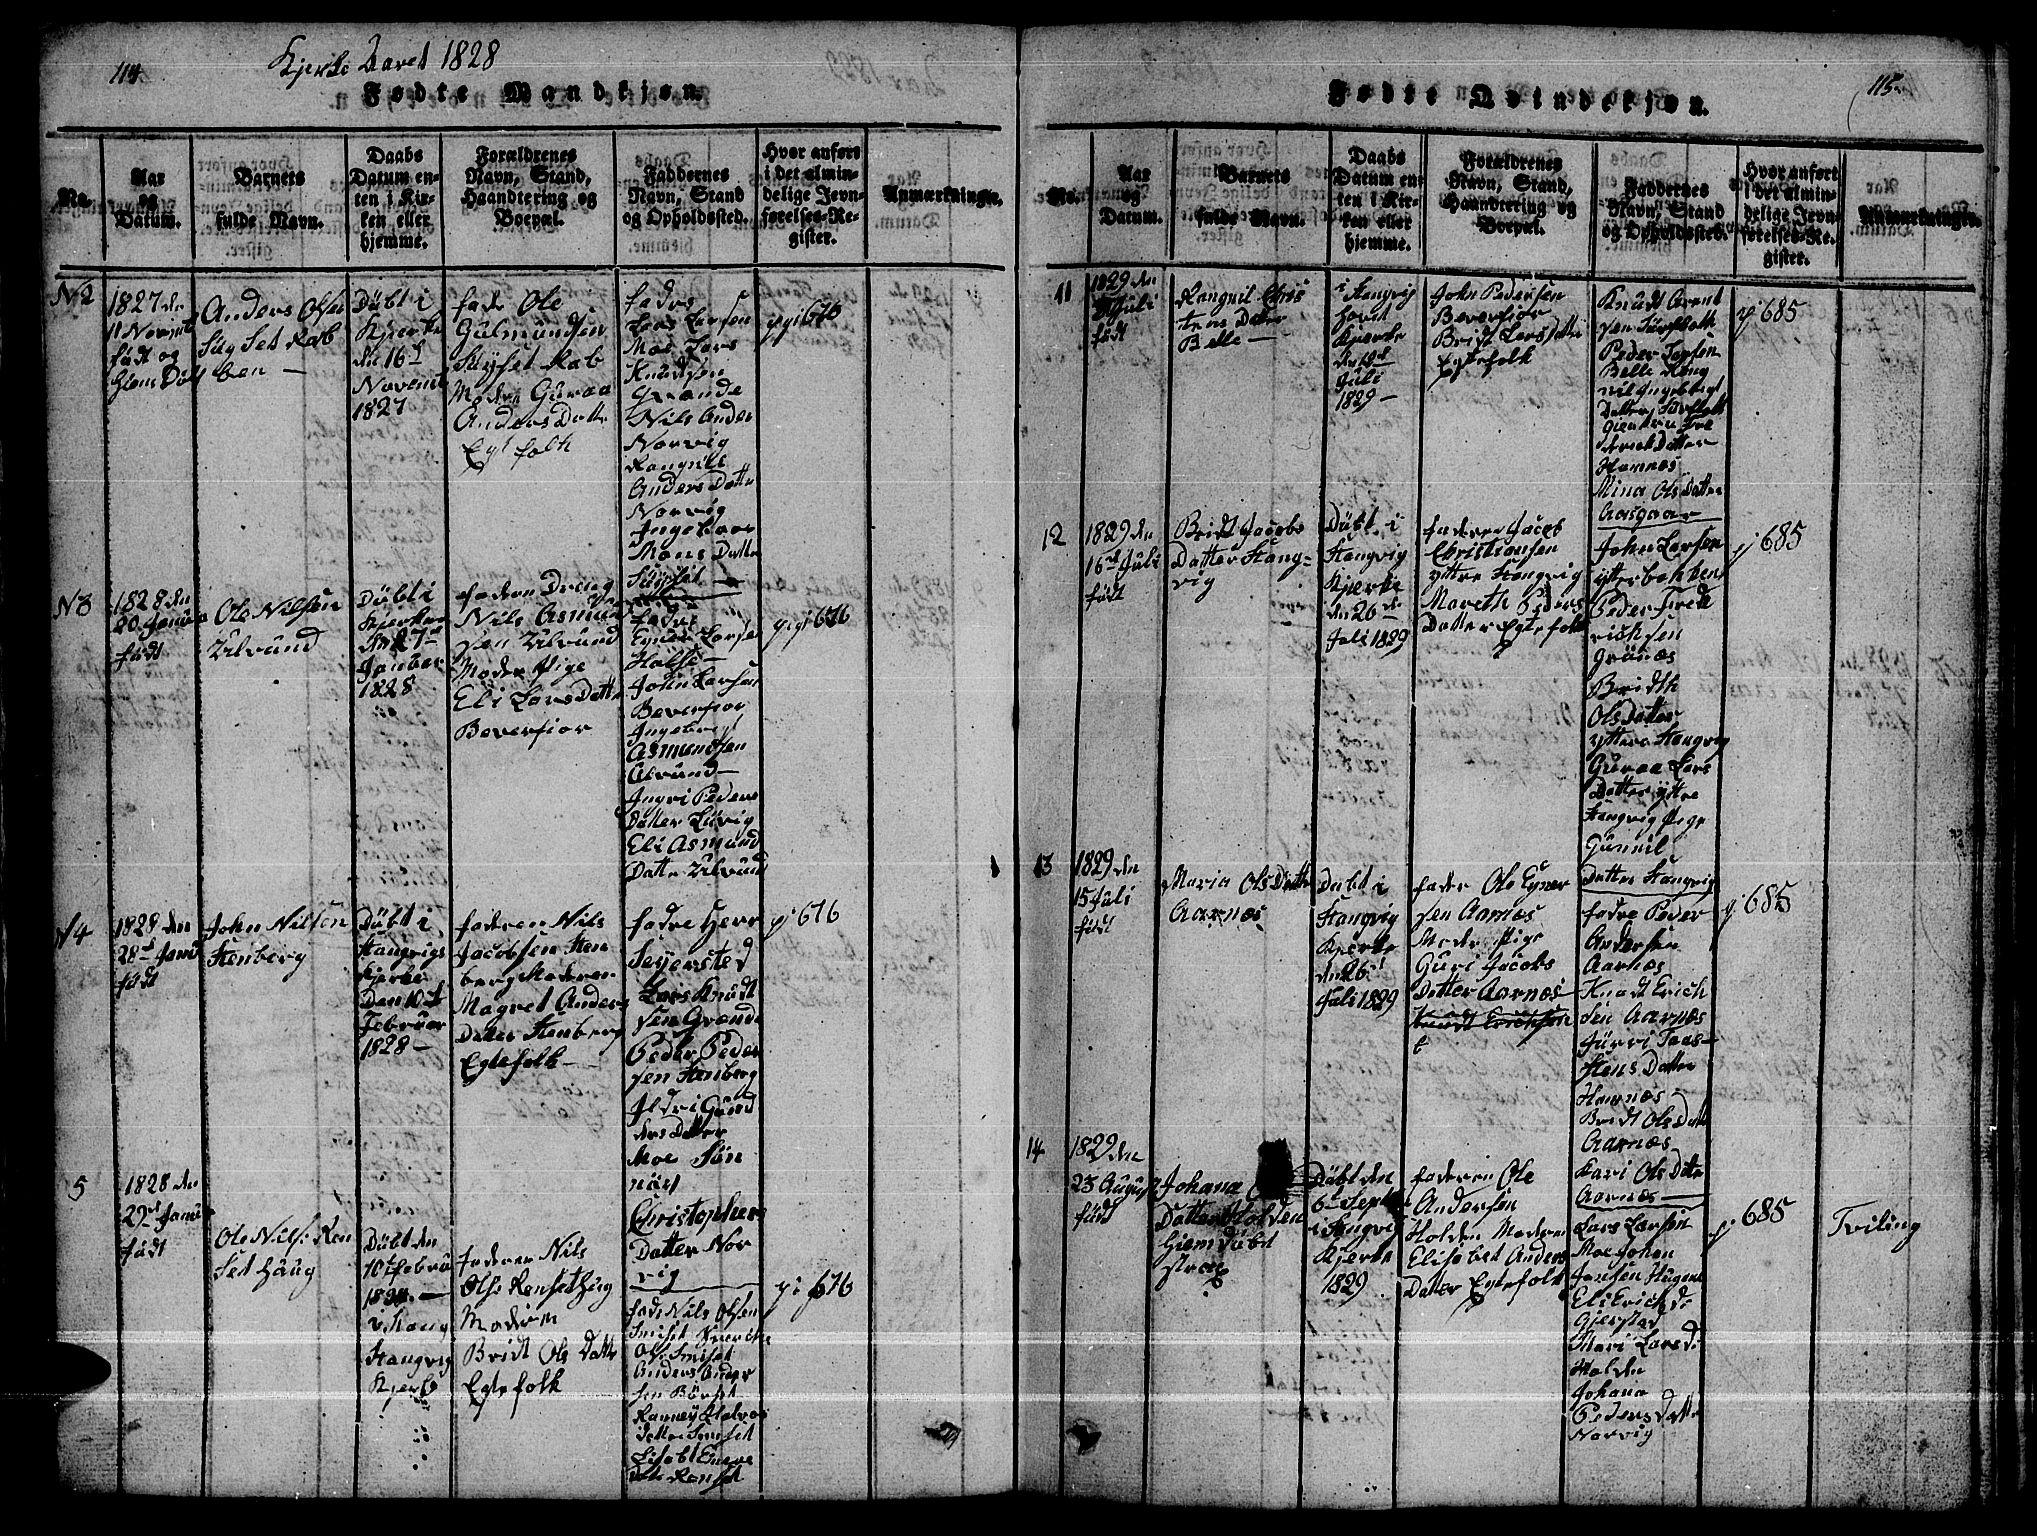 114.
Kjerke Aaret 1828
Fødte Mandkjøn.
No.
Aar
og
Datum.
Barnets
fulde Navn.
Daabs
Datum en-
ten i Kir-
ken eller
hjemme.
Forældrenes
Navn, Stand,
Haandtering og
Boepæl.
Faddernes
Navn, Stand
og Opholdssted.
Hvor anført
i det almin-
delige Jevn-
førelses-Re-
gister.
Anmærkninger.
N2
1827 de
11 Novemb
födt og
Anders Olsen
Döbt i
Kjerke
den 16
Novemb
1827
fader Ole
Gulmundsen
Moder Guraa
Anders Datter
Egtefolk
fadre
Lars Larsen
Moe Lars
Knudsen
Grande
Nils Ander
Norvig
Rangnil
Anders Datte
Norvig
Ingebaar
Mons Datter
676
N3
1828 den
20 Janua
födt
Ole Nilsen
Ulvund
Döbt i
Kjerken
Januar
1828
faderen Dreng
Nils Asmund
sen Ulvund
Moder Pige
Eli Lars Datte
Beverfior
fadre
Eyner Larse
Halse
John Larsen
Beverfior
Ingebregt
Asmundsen
Ulvund
Ingri Peders
Datter
Eli Asmund
Datte Ulvund
676
N4
1828 den
28 Janu
födt
John Nilsen
Stenberg
Döbt i
Stangvigs
Kjerke
Den 10
Februar
1828
faderen Nils
Jacobsen Sten
berg Moderen
Magret Anders
Datter Stenberg
Egtefolk
fadre Herr
Sejersted
Lars Knudt
sen Grande
Peder Peder
sen Stenberg
Datter
Moe
Christophers
Datter Nor
vig
676
5
1828 den
29 Janu
födt
Ole Nils: Ren
set Haug
Döbt den
10 febru
Stangvig
Kjerke
faderen Nils
Olse Renset Haug
Moderen
Bridt Ols Datte
Egtefolk
fadr Nils Olsen
Anders Ander
sen
676
115
Fødte Qvindekjøn.
No.
Aar
og
Datum.
Barnets
fulde Navn.
Daabs
Datum en-
ten i Kir-
ken eller
hjemme.
Forældrenes
Navn, Stand,
Haandtering og
Boepæl.
Faddernes
Navn, Stand
og Opholdssted.
Hvor anført
i det almin-
delige Jevn-
førelses-Re-
gister.
Anmærkninger.
11
1829 den
Juli
födt
Rangnil Chris
tens Datter
Belle
i Stangvig
Hoved
Kjerke
Juli
1829
John Pedersen
Beverfior
Bridt Lars Datter
Egtefolk
Knudt Arent
sen
Peder Larsen
Belle
Datter
Mina Ols Datter
Aasgaar
685
12
1829 den
16 Juli
födt
Bridt Jacobs
Datter Stang-
vig
Döbt i
Stangvig
Kjerke
den 26
Juli 1829
faderen Jacob
Christiansen
yttre Stangvig
Mareth Peders
Datter Egtefolk
John Larsen
ytterbakken
Peder Fred
richsen
Grönæs
Bridth
Ols Datter
yttere Stangvig
Guraa Lars
Datter yttre
Stangvig Pige
Gunnil
Datter Stangvig
685
13
1829 den
15 Juli
födt
Maria Ols Datte
Aarnæs
Döbt i
Stangvig
Kjerke
den 26
Juli 1829
fader Ole Eyner
sen Aarnæs
Moder Pige
Guri Jacobs
Datter Aarnæs
Knudt Erichsen
fadre Peder
Andersen
Aarnæs
Knudt Erich
sen Aarnæs
Datter
Bridt Ols Datt
Aarnæs
Kari Ols Datte
Aarnæs
685
14
1829 den
23 August
födt
Johana
Datter Holden
Hiemdöbt
strax
Döbt den
6 Sept
i Stangvig
Kjerke
1829
faderen Ole
Andersen
Holden Moderen
Elisabet Anders
Datter Egtefolk
Lars Larsen
Moe Johan
Jansen Hugene
Eli Erichsd
Gjerstad
Mari Larsd
Holden
Johana
Peders Datte
Norvig
685
Tviling